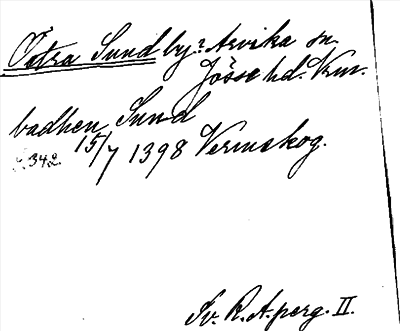 Östra Sund by? Arvika sn.
Jösse hd. Vrm.
badhen Sund
s. 342. 15/7 1398 Vermskog.
Sv. R. A. perg. II.